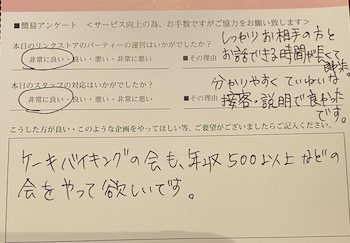 ■簡易アンケート　＜サービス向上の為、お手数ですがご協力をお願い致します＞
本日のリンクストアのパーティーの運営はいかがでしたか？
非常に良い・良い・悪い・非常に悪い　■その理由
しっかりお相手の方と
お話できる時間が長くて
本日のスタッフの対応はいかがでしたか？
非常に良い・良い・悪い・非常に悪い　■その理由
分かりやすくていねいな
接客・説明で良かった
です。
こうした方が良い・このような企画をやってほしい等、ご要望がございましたらご記入ください。
ケーキバイキングの会も、年収500以上などの
会をやって欲しいです。